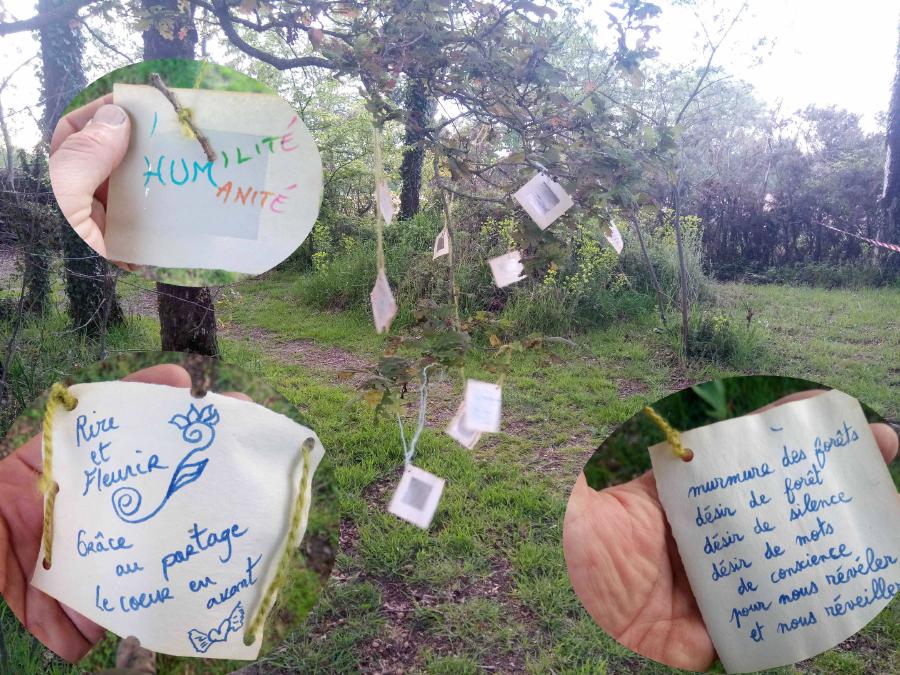 HUMILITÉ
ANITÉ
Rire
et
Fleurir
Grâce
au partage
le coeur en
avant
murmure des forêts
désir de forêt
désir de silence
désir de mots
de conscience
pour nous révéler
et nous réveiller